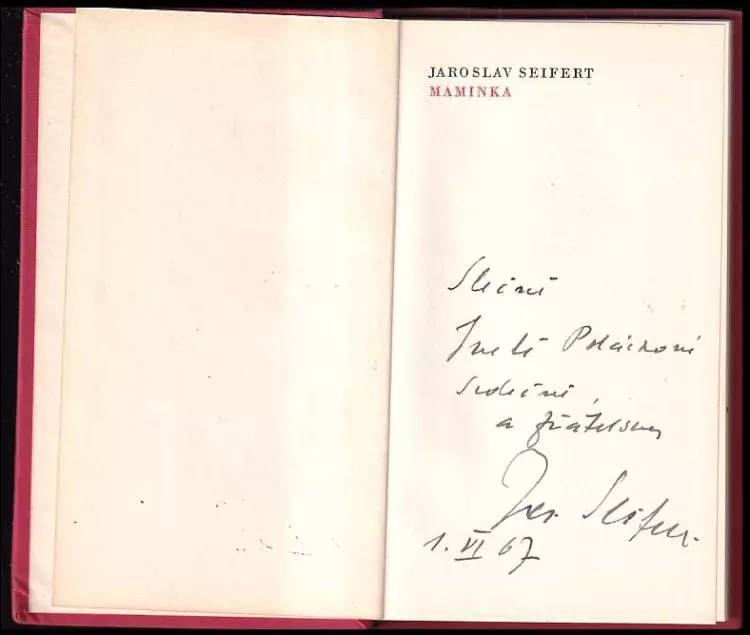 JAROSLAV SEIFERT
MAMINKA
Slečně
Ivetě Poláčkové
srdečně
a přátelsky
Jar. Seifert
1. VI 67